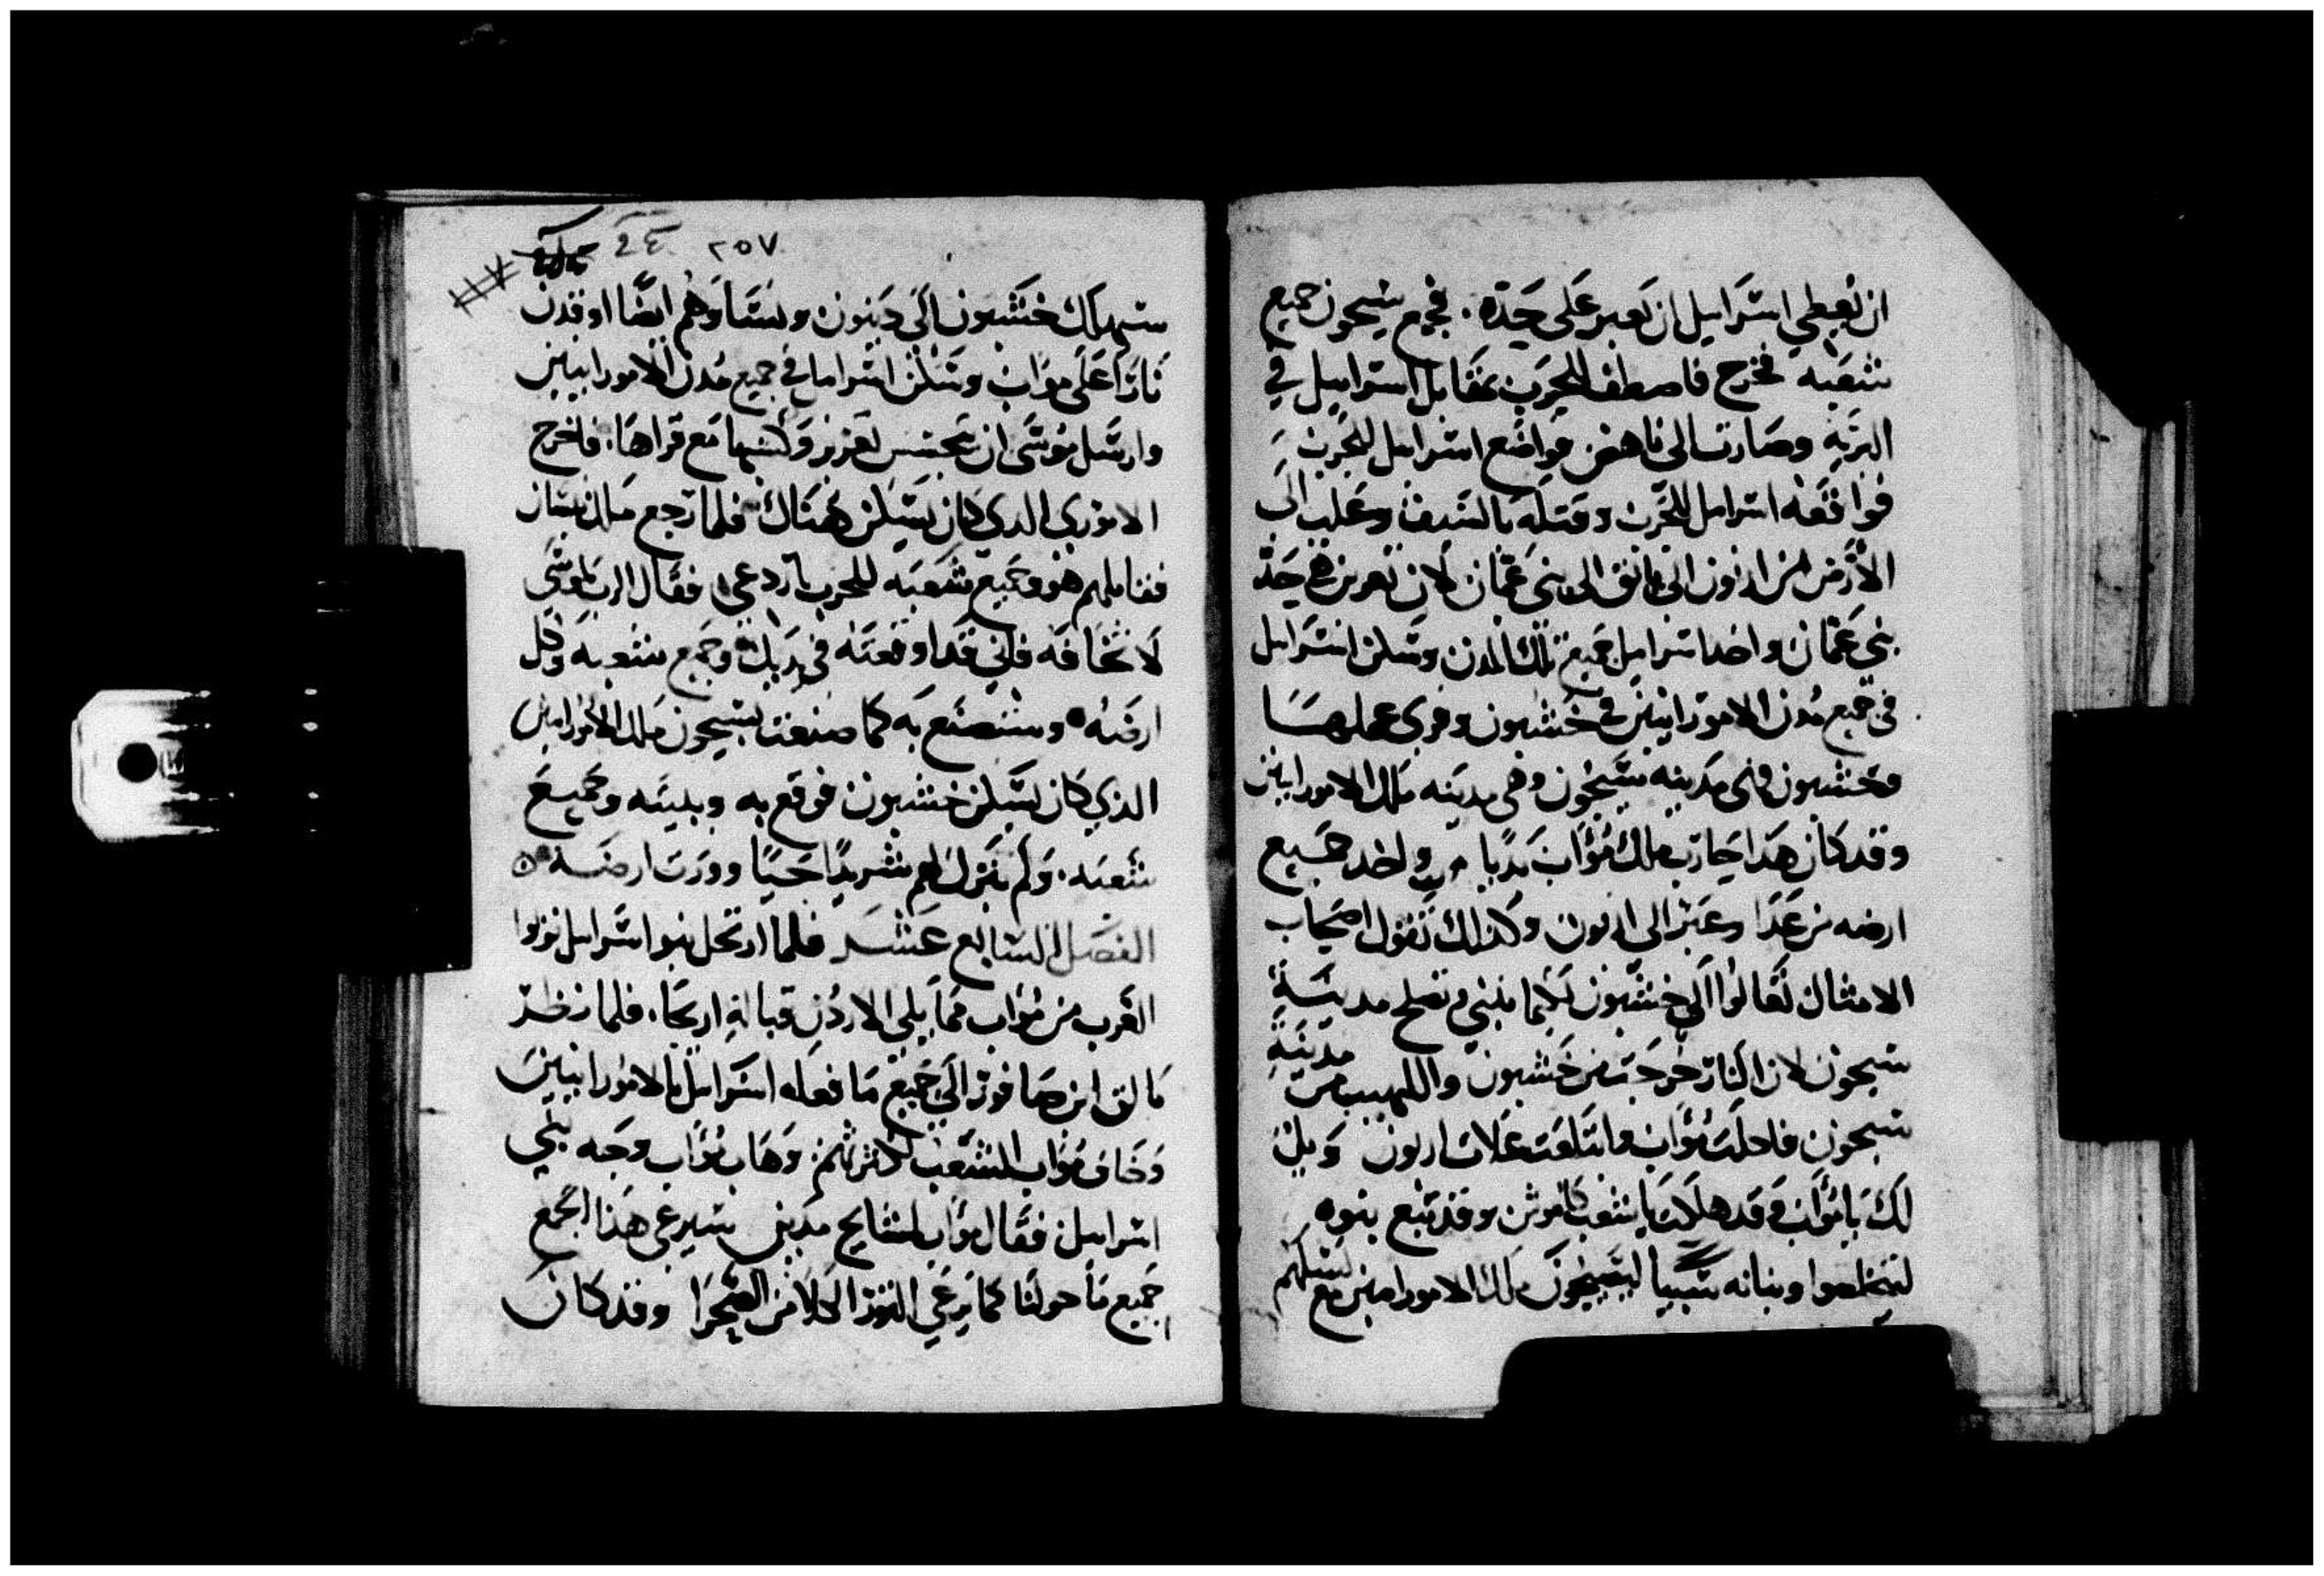 ان يعطي اسرايل ان تعبر على حده . فجمع سيحون جميع
شعبه فخرج فاصطف للحرب بمقابل اسرايل في
البريه وصارت الى ناهض فواضع اسرايل للحرب
فواقعه اسرايل للحرب وقتله بالسيف وغلب الى
الارض من ارنون الى يابق الى بني عمان لان تعزيز هي حد
بني عمان واخد اسرايل جميع تلك المدن وسكن اسرايل
في جميع مدن الامورانيين في خشبون وقرى عملها
وخشبون فهى مدينه سيحون وهى مدينه ملك الامورانيين
وقد كان هدا حارب ملك مواب بديا واخد جميع
ارضه من عدا وعبر الى ارنون وكذلك تقول اصحاب
الامثال تعالوا الى خشبون لكيما نبني وتصلح مدينه
سيحون لان النار خرجت من خشبون واللهيب من مدينة
سيحون فاحلت مواب وابتلعت علات ارنون ويل
لك يا مواب قد هلكت يا شعب كاموش وقد تبع بنوه
ليتخلصوا وبناته سبيا لسيحون ملك الامورانيين مع نسلهم
٢٥٧
سيهلك خشبون الى ديبون ونساوهم ايضا اوقدن
نارا على مواب وسكن اسرايل في جميع مدن الامورانيين
وارسل موسى ان يجسس تعزيز وكسبها مع قراها . فاخرج
الاموري الدي كان يسكن هناك فلما رجع ملك بيسان
فقابلهم هو وجميع شعبه للحرب بادرعي فقال الرب لموسى
لا تخافه فاني قد اوقعته في يديك وجميع شعبه وكل
ارضه وستصنع به كما صنعت بسيحون ملك الامورانيين
الذي كان يسكن خشبون فوقع به وببنيه وجميع
شعبه . ولم يترك لهم شريدا حيا وورث ارضه
الفصل السابع عشر فلما ارتحل بنو اسرايل نزلوا
الغرب من مواب مما يلي الاردن قبالة اريحا . فلما نظر
بالق ابن صافور الى جميع ما فعله اسرايل بالامورانيين
وخاف مواب الشعب لكثرتهم . وهاب مواب وجه بني
اسرايل فقال مواب لمشايخ مدين سيرعى هذا الجمع
جميع ما حولنا كما يرعى الثور الكلا من الصحرا وقد كان